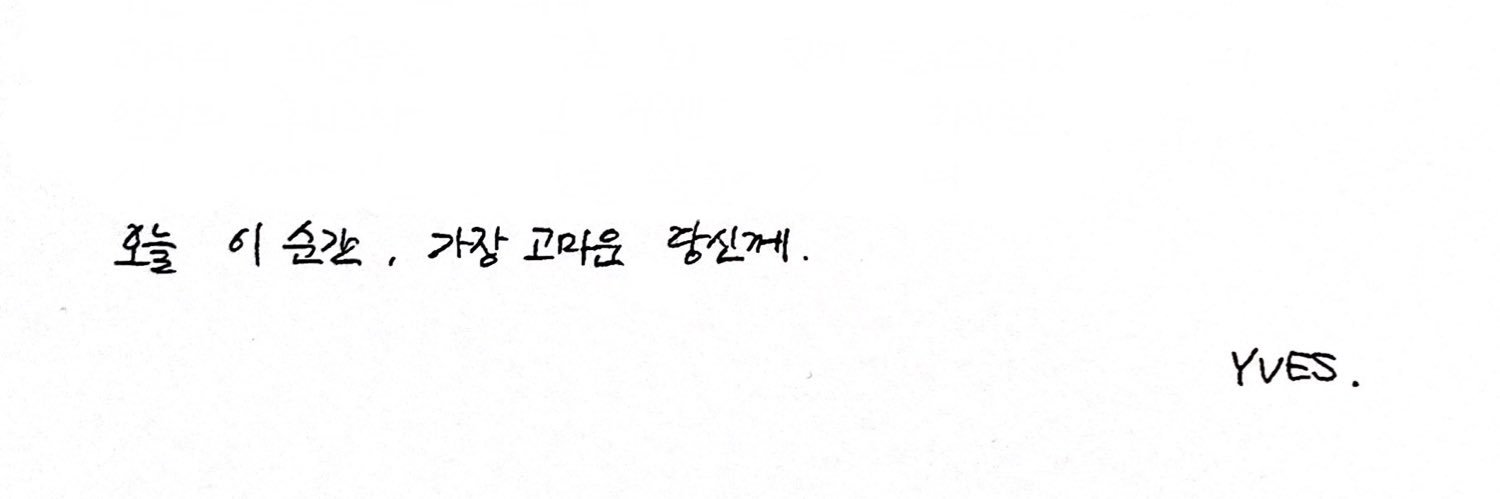 오늘 이 순간, 가장 고마운 당신께.
YVES.